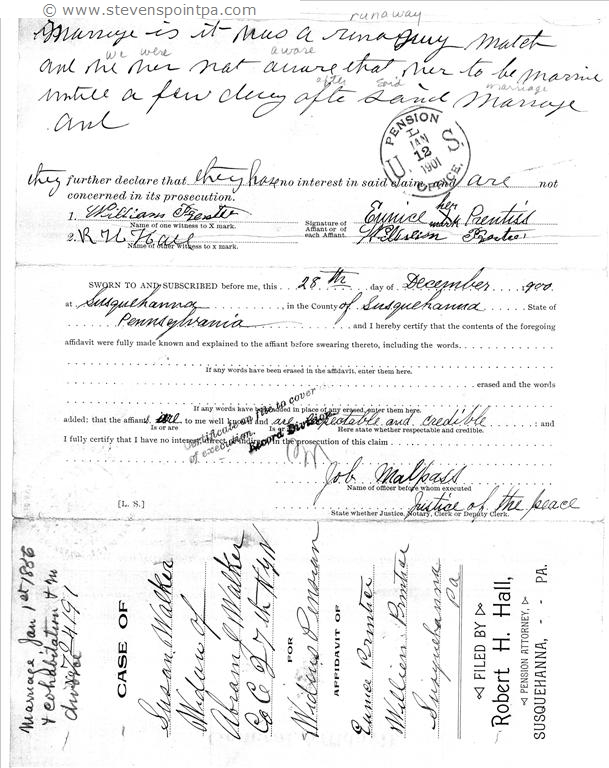 © www.stevenspointpa.com
runaway
Marriage is it was a runaway match
we were aware
and we her not aware that her to be married
after said marriage
untill a few days afte said Marriage
and
PENSION OFFICE
U. S.
JAN
12
1901
they further declare that they have no interest in said claim, and are not
concerned in its prosecution.
1. William
Name of one witness to X mark.
2. R H Hall
Name of other witness to x mark.
Signature of
Affiant or of
each Affiant.
Eunice her mark Prentiss
SWORN TO AND SUBSCRIBED before me, this 28th day of December 1900
at Susquehanna, in the County of Susquehanna State of
Pennsylvania and I hereby certify that the contents of the foregoing
affidavit were fully made known and explained to the affiant before swearing thereto, including the words
If any words have been erased in the affidavit, enter them here.
erased and the words
If any words have been added in place of any erased, enter them here.
added; that the affiant s are to me well known and are respectable and credible ; and
Is or are
Is or are
Here state whether respectable and credible.
I fully certify that I have no interest, direct or indirect in the prosecution of this claim
Certificate on file to cover
of execution.
Record Division
Job Malpass
Name of officer before whom executed
Justice of the peace
[L. S.]
State whether Justice, Notary, Clerk or Deputy Clerk.
Marriage Jan 1st 1886
& cohabitation & no
divorce
CASE OF
Susan Walker
Widow of
Abram J Walker
Co C 27th N.Y.V
FOR
Widows Pension
AFFIDAVIT OF
Eunice
William
Susquehanna
Pa
FILED BY
Robert H. Hall,
PENSION ATTORNEY,
SUSQUEHANNA, - - PA.